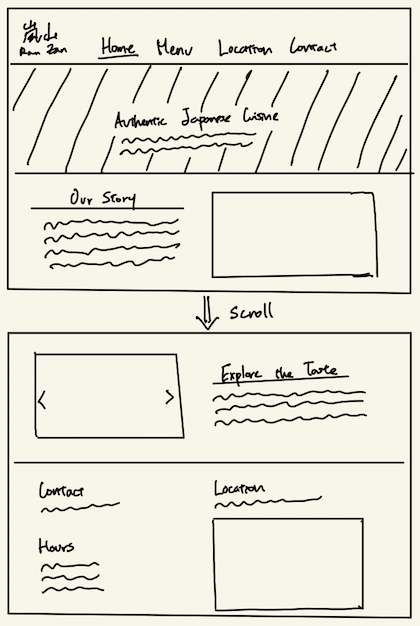 Ran Zan
Home Menu Location Contact
Authentic Japanese Cuisine
Our Story
Scroll
Explore the Taste
Contact
Location
Hours